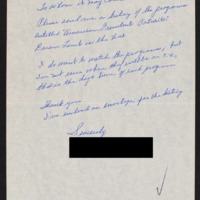 To whom it may concern
Please send me a listing of the programs
entitled "American Presidents Portraits"
Brian Lamb is the host
I do want to watch the programs, but
I'm not sure when they will be on T.V.,
that is the days & time of each program
Thank you
I've enclosed an envelope for the listing
Sincerely